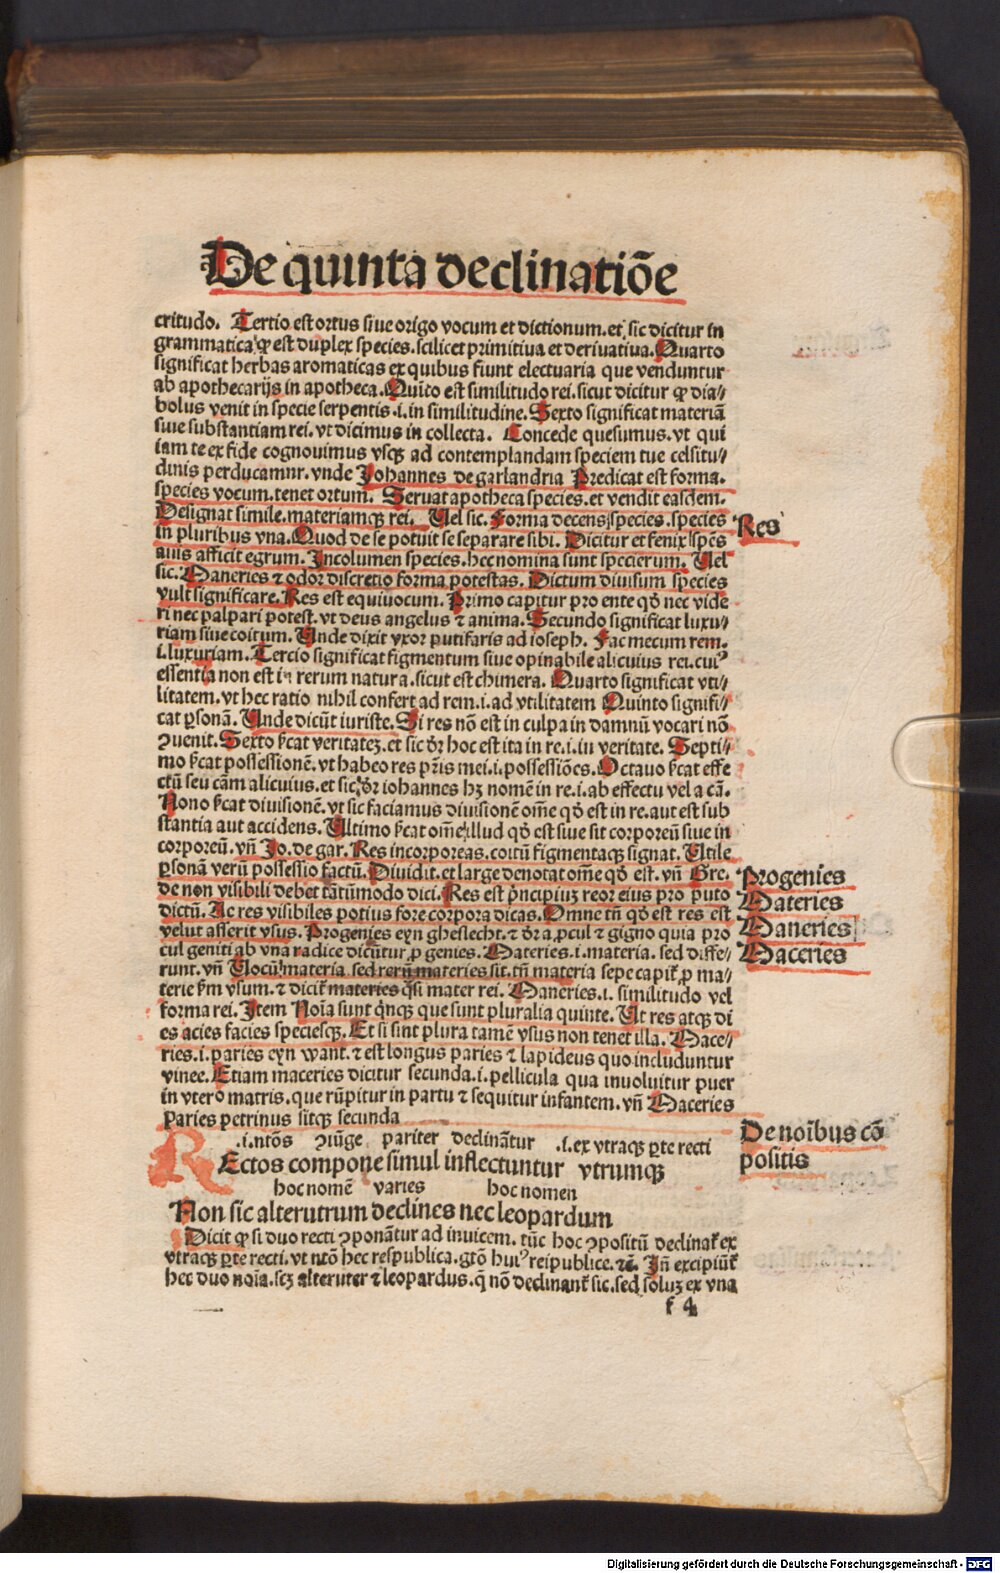 De quinta declinatiōe
critudo. Tertio est ortus siue origo vocum et dictionum. et sic dicitur in
grammatica ꝙ est duplex species. scilicet primitiua et deriuatiua. Quarto
significat herbas aromaticas ex quibus fiunt electuaria que venduntur
ab apothecarijs in apotheca. Quīto est similitudo rei. sicut dicitur ꝙ dia⸗
bolus venit in specie serpentis .i. in similitudine. Sexto significat materiā
siue substantiam rei. vt dicimus in collecta. Concede quesumus. vt qui
iam te ex fide cognouimus vsqꝫ ad contemplandam speciem tue celsitu⸗
dinis perducamnr. vnde Johannes de garlandria Predicat est forma.
species vocum. tenet ortum. Seruat apotheca species. et vendit easdem.
Designat simile. materiamqꝫ rei. Uel sic. Forma decens species. species
Res
in pluribus vna. Quod de se potuit se separare sibi. Dicitur et fenix spēs
auis afficit egrum. Incolumen species. hec nomina sunt specierum. Uel
sic. Maneries ⁊ odor discretio forma potestas. Dictum diuisum species
vult significare. Res est equiuocum. Primo capitur pro ente qđ nec vide
ri nec palpari potest. vt deus angelus ⁊ anima. Secundo significat luxu⸗
riam siue coitum. Unde dixit vxor putifaris ad ioseph. Fac mecum rem.
i. luxuriam. Tercio significat figmentum siue opinabile alicuius rei. cuiꝰ
essentia non est in rerum natura. sicut est chimera. Quarto significat vti⸗
litatem. vt hec ratio nihil confert ad rem .i. ad vtilitatem Quinto signifi⸗
cat ꝑsonā. Unde dicūt iuriste. Si res nō est in culpa in damnū vocari nō
ꝯuenit. Sexto ſ̄cat veritatēꝫ. et sic dr̄ hoc est ita in re .i. in veritate. Septi⸗
mo ſ̄cat possessionē. vt habeo res pr̄is mei .i. possessiōes. Octauo ſ̄cat effe
ctū seu cām alicuius. et sic dr̄ iohannes hꝫ nomē in re .i. ab effectu vel a cā.
Nono ſ̄cat diuisionē. vt sic faciamus diuisionē om̄e qđ est in re. aut est sub
stantia aut accidens. Ultimo ſ̄cat om̄e illud qđ est siue sit corporeū siue in
corporeū. vñ Jo. de gar. Res incorporeas. coitū figmentaqꝫ signat. Utile
ꝑsonā verū possessio factū. Diuidit. et large denotat om̄e qđ est. vñ Gre.
Progenies
de non visibili debet tātūmodo dici. Res est pn̄cipiuꝫ reor eius pro puto
Materies
dictū. Ac res visibiles potius fore corpora dicas. Omne tn̄ qđ est res est
Maneries
velut asserit vsus. Progenies eyn gheslecht. ⁊ dr̄ a ꝓcul ⁊ gigno quia pro
cul geniti ab vna radice dicūtur ꝓgenies. Materies .i. materia. sed diffe⸗
Maceries
runt. vñ Uocū materia sed rerū materies sit. tn̄ materia sepe capit̄ ꝓ ma⸗
terie ſm vsum. ⁊ dicit̄ materies q̄si mater rei. Maneries .i. similitudo vel
forma rei. Item Noīa sunt qn̄qꝫ que sunt pluralia quinte. Ut res atqꝫ di
es acies facies speciesqꝫ. Et si sint plura tamē vsus non tenet illa. Mace⸗
ries .i. paries eyn want. ⁊ est longus paries ⁊ lapideus quo includuntur
vinee. Etiam maceries dicitur secunda .i. pellicula qua inuoluitur puer
in vtero matris. que rūpitur in partu ⁊ sequitur infantem. vñ Maceries
Paries petrinus sitqꝫ secunda
.i. ntōs ꝯiūge pariter declināntur .i. ex vtraqꝫ ꝑte recti
De noībus cō
positis
REctos compone simul inflectuntur vtrumqꝫ
hoc nomē varies hoc nomen
Non sic alterutrum declines nec leopardum
Dicit ꝙ si duo recti ꝯponātur ad inuicem. tūc hoc ꝯpositū declinat̄ ex
vtraqꝫ ꝑte recti. vt ntō hec respublica. gtō huiꝰ reipublice. ⁊c̄. Iñ excipiūt̄
hec duo noīa. scꝫ alteruter ⁊ leopardus. q̄ nō declinant̄ sic. sed soluꝫ ex vna
f 4
Digitalisierung gefördert durch die Deutsche Forschungsgemeinschaft - DFG